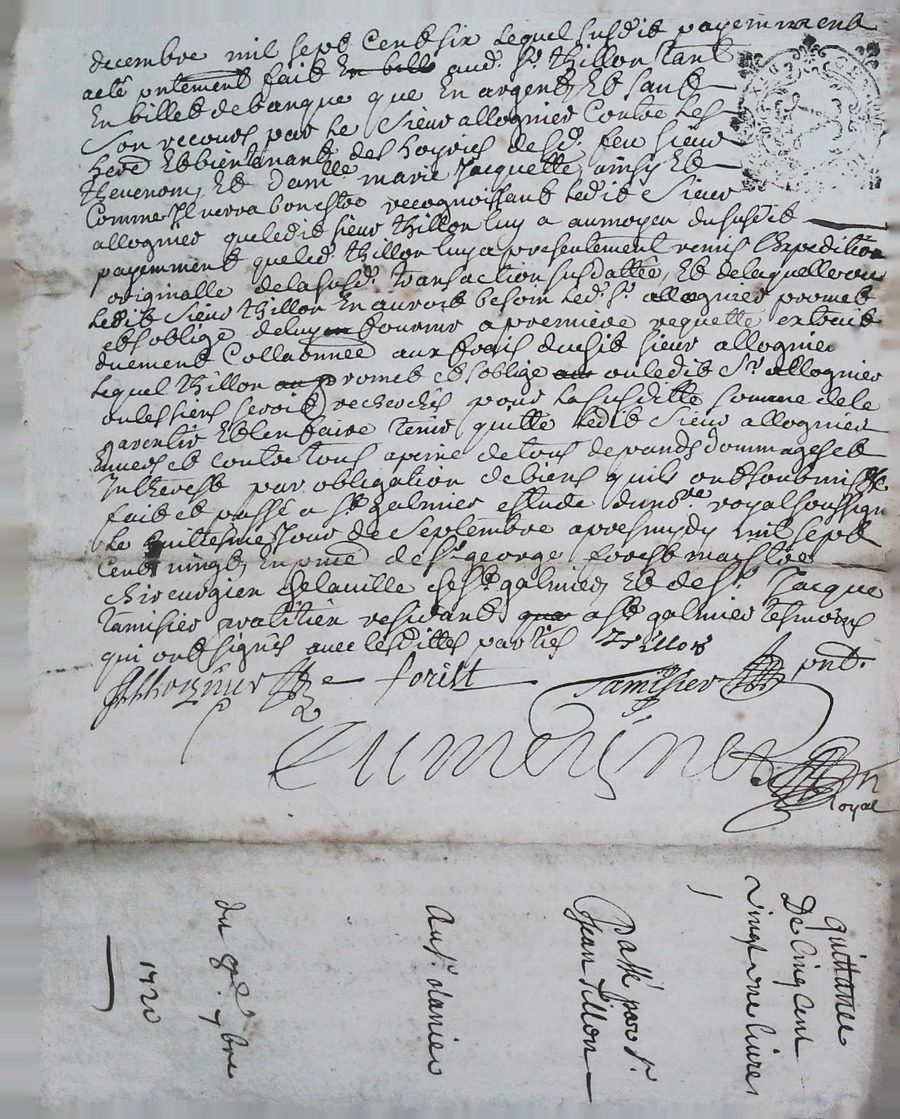 decembre mil sept Cent six lequel susdit payemment a
acté pntement faict aud. Sr. thillon tant
En billet de banque que En argent, Et sauf
Son recours par le Sieur allognier Contre les
hers. Et bientenants des hoyries desd. feu sieur
thevenon, Et damlle marie Jacquette, ainsy Et
Comme Il verra bon estre recognoissant ledit Sieur
allognier que ledit sieur thillon luy a au moyen du susdit
payemment que led. thillon luy a presentement remis l'Expedition
originalle de la susd. transaction susdattée, Et de laquelle ou
ledit Sieur thillon En auroit besoin led. Sr. allognier promet
et soblige de luy fournir a premiere requette extrait
duement Collationnée aux frais dudit sieur allognier
Lequel thillon promet et soblige ou ledit Sr. allognier
ou les siens seroit recherchés pour la susditte somme de le
garentir Et len faire tenir quitte ledit Sieur allognier
Envers et contre tous a peine de tous depands dommages et
Intherest par obligation de biens quils ont soubmis &c
fait et passé a st galmier estude du nore. royal soussigné
Le huittiesme Jour de Septembre apres mydy mil sept
Cent vingt, En pnce de Sr. george forest maistre
chireurgien de la ville de st galmier, Et de Sr. Jacque
tamisier pratitien residant a st galmier tesmoins
qui ont signés avec lesdittes parties Thillon
Allognier forest Tamisier pnt.
Royal
quittance
De Cinq cent
vingt une livre
Passé par Sr.
Jean Tillon
du 8e. 7bre
1720